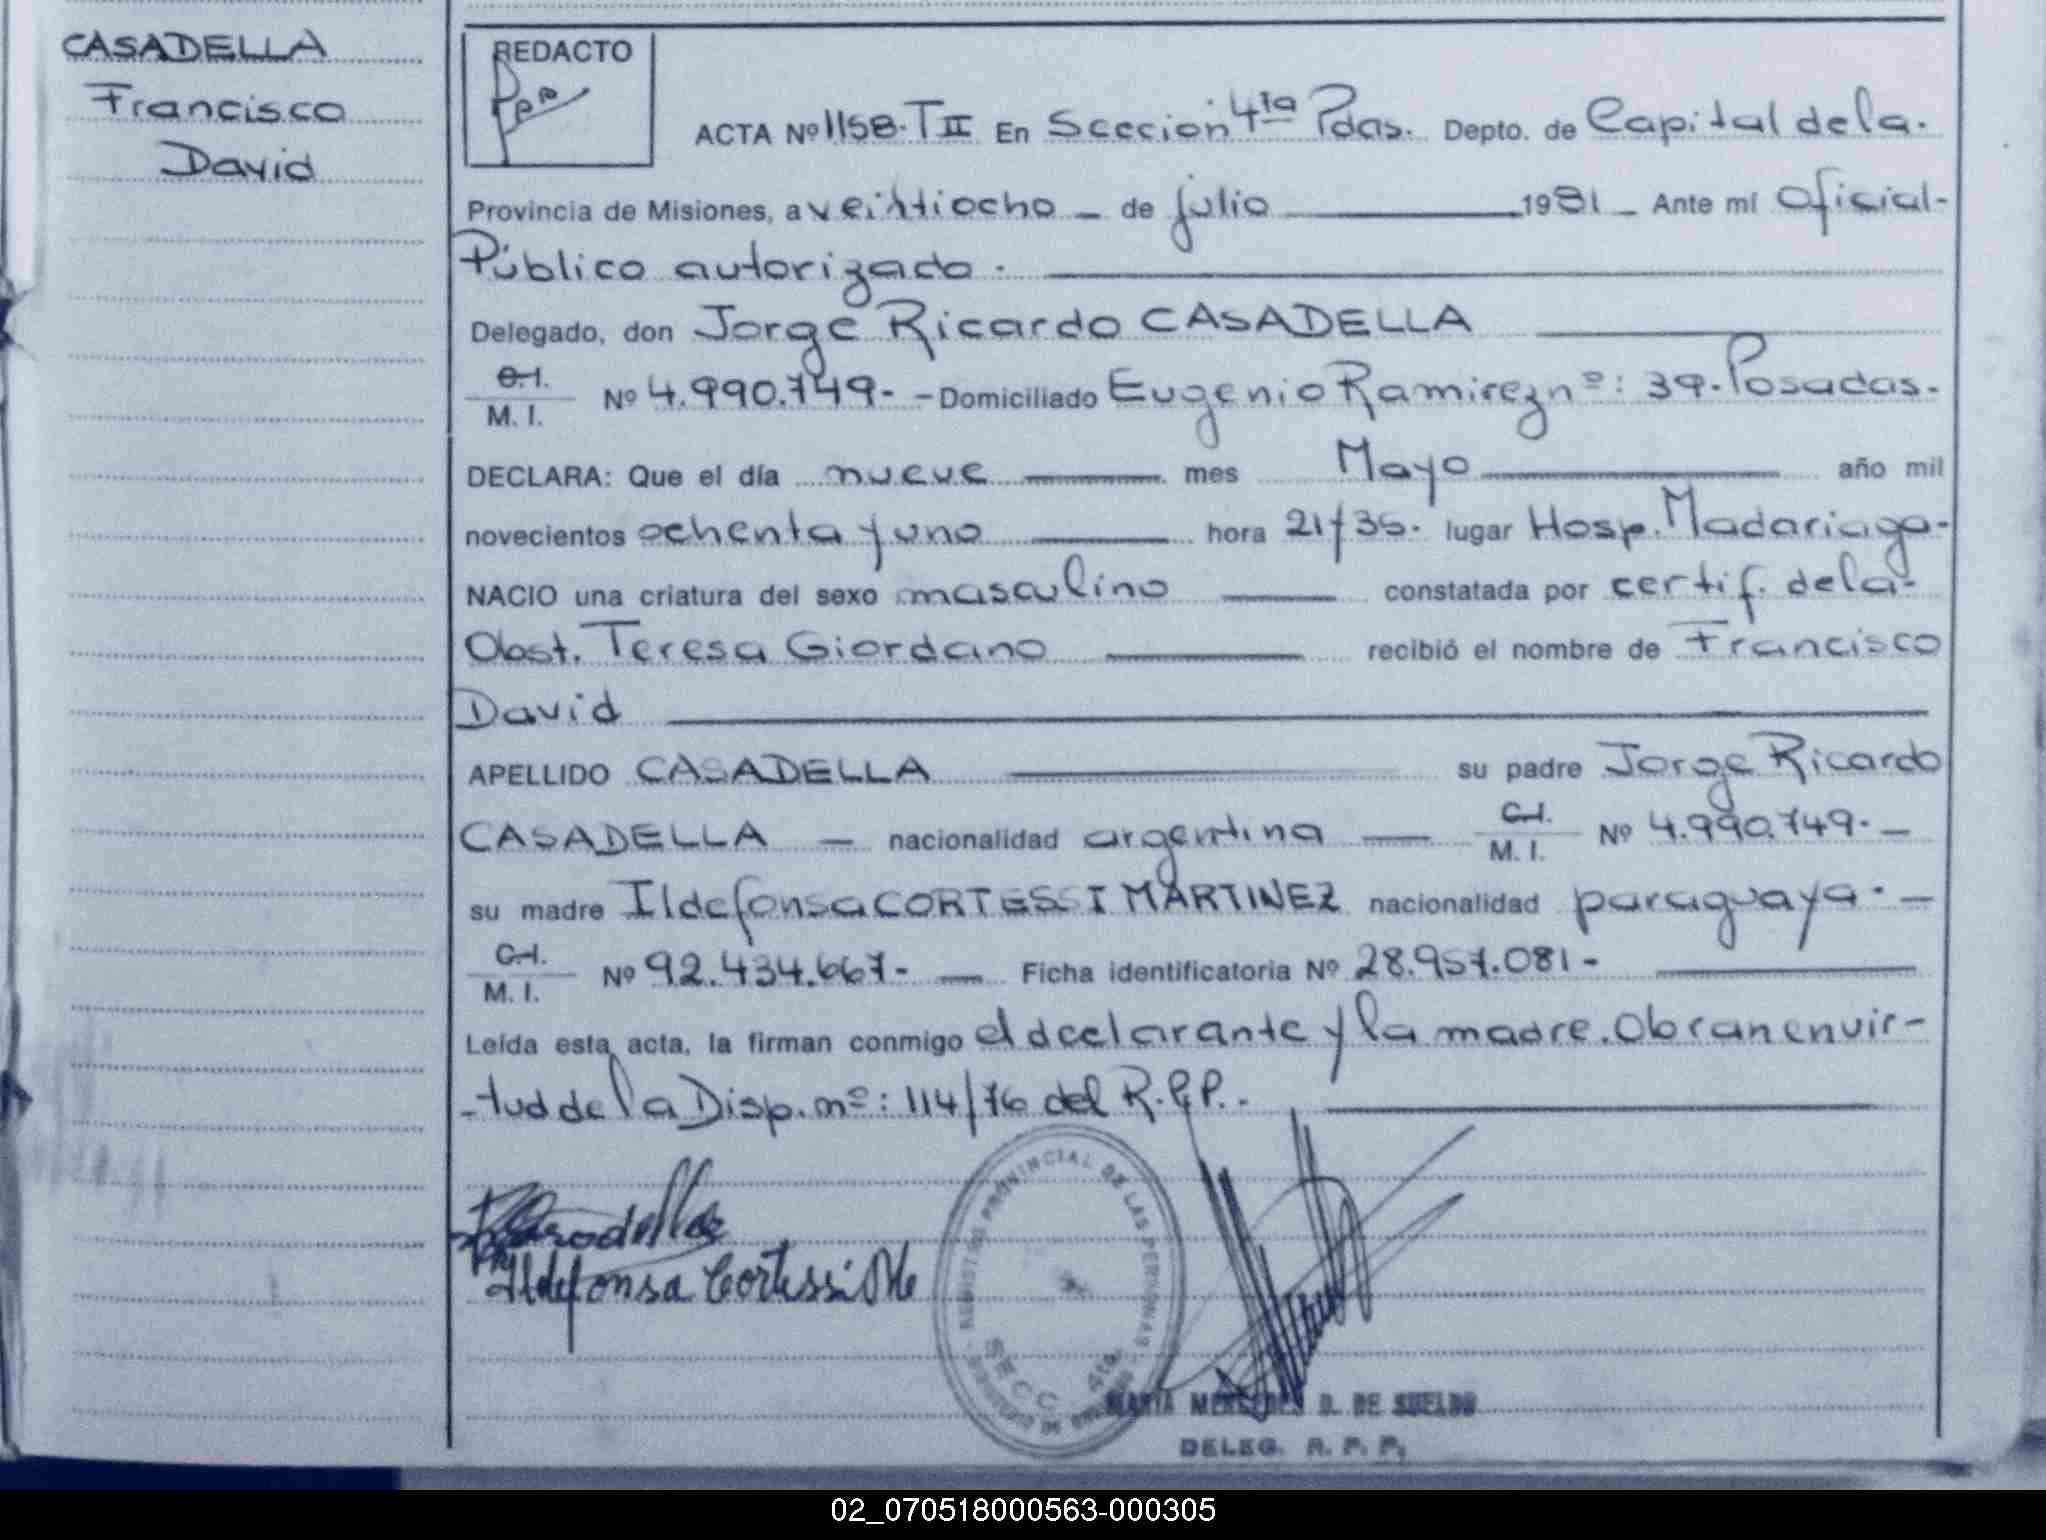 CASADELLA
Francisco
David
REDACTO
ACTA Nº 1158. T II En Sección 4ta Pdas. Depto. de Capital de la.
Provincia de Misiones, a veintiocho de julio 1981 Ante mí Oficial-
Público autorizado.
Delegado, don Jorge Ricardo CASADELLA
C.I.
M. I. Nº 4.990.749.- Domiciliado Eugenio Ramirez nº: 39. Posadas.
DECLARA: Que el día nueve mes Mayo año mil
novecientos ochenta y uno hora 21 y 35. lugar Hosp. Madariaga-
NACIO una criatura del sexo masculino constatada por certif. de la-
Obst. Teresa Giordano recibió el nombre de Francisco
David
APELLIDO CASADELLA su padre Jorge Ricardo
CASADELLA — nacionalidad argentina — C.I. M. I. Nº 4.990.749.-
su madre Ildefonsa CORTESSI MARTINEZ nacionalidad paraguaya. -
C.I.
M. I. Nº 92.434.667- Ficha identificatoria Nº 28.957.081-
Leída esta acta, la firman conmigo el declarante y la madre. Obran en vir-
-tud de la Disp. nº: 114/76 del R.P.P..
Ildefonsa Cortessi
REGISTRO PROVINCIAL DE LAS PERSONAS
SECC. 4ta.
MARIA MERCEDES D. DE SUELDO
DELEG. R. P. P.
02_070518000563-000305